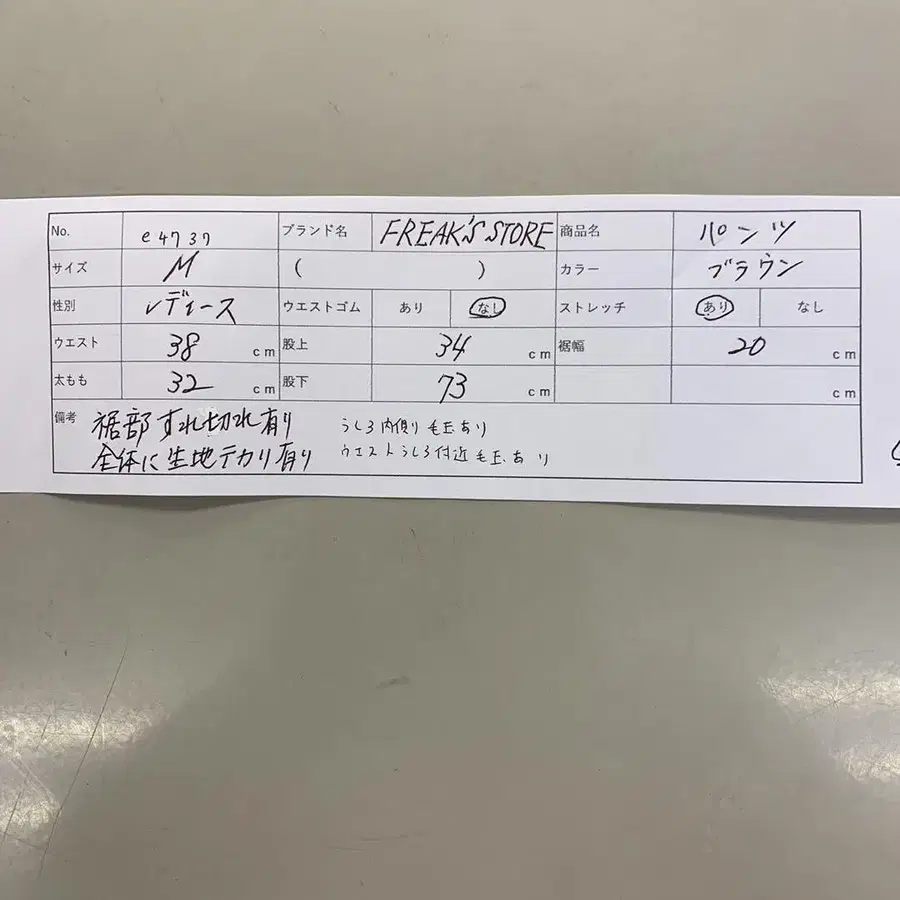 No. e4737 ブランド名 FREAK'S STORE 商品名 パンツ
サイズ M ( ) カラー ブラウン
性別 レディース ウエストゴム あり なし ストレッチ あり なし
ウエスト 38 cm 股上 34 cm 裾幅 20 cm
太もも 32 cm 股下 73 cm cm
備考 裾部すれ切れ有り うしろ内側り毛玉あり
全体に生地テカリ有り ウエストうしろ付近毛玉あり